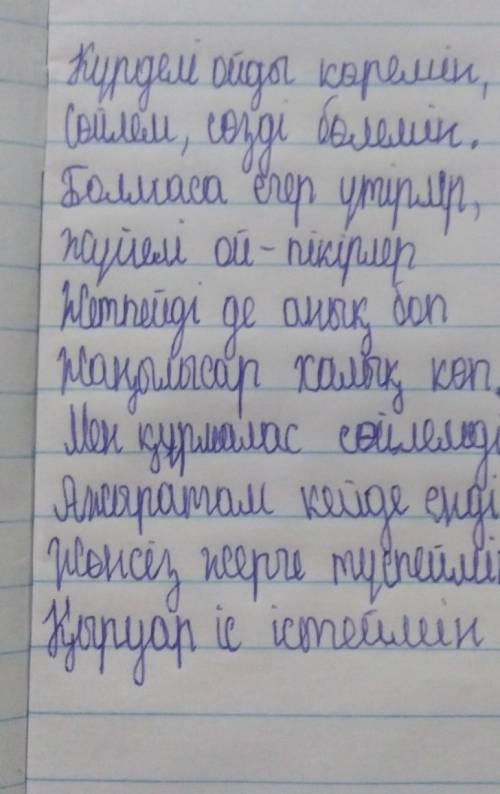 Күрделі ойды көремін,
Сөйлем, сөзді бөлемін.
Болмаса егер үтірлер,
Жүйелі ой-пікірлер
Жетпейді де анық боп
Жаңылысар халық көп.
Мен құрмалас сөйлемді
Ажыратам кейде енді
Жөнсіз жерге түспеймін
Қыруар іс істеймін